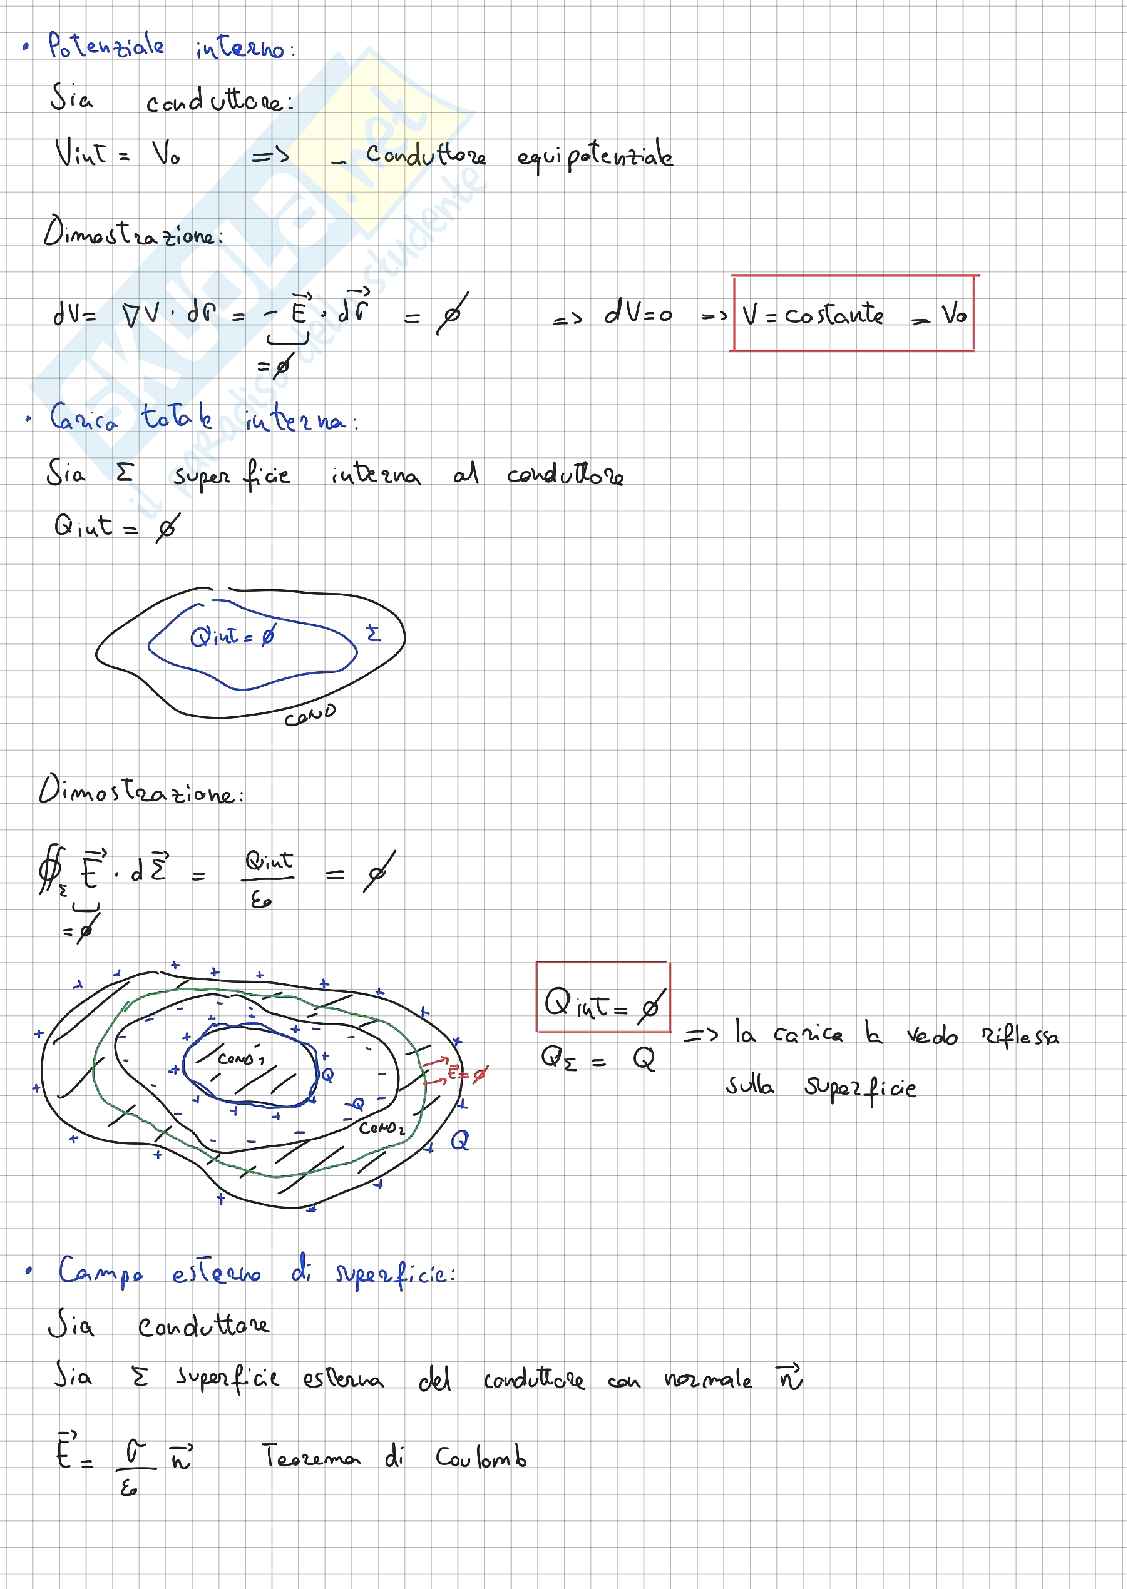 • Potenziale interno:
Sia conduttore:
Vint = V₀ => - Conduttore equipotenziale
Dimostrazione:
dV = ∇V · dr = - E⃗ · dr⃗ = ∅ => dV=0 -> V = costante = V₀
= ∅
• Carica totale interna:
Sia Σ superficie interna al conduttore
Qint = ∅
Qint = ∅ Σ
COND
Dimostrazione:
∯_Σ E⃗ · dΣ⃗ = Qint/ε₀ = ∅
= ∅
Qint = ∅
Q_Σ = Q => la carica la vedo riflessa
sulla superficie
COND₁
Q
-Q
E⃗ = ∅
COND₂
Q
• Campo esterno di superficie:
Sia conduttore
Sia Σ superficie esterna del conduttore con normale n⃗
E⃗ = σ/ε₀ n⃗ Teorema di Coulomb
SKUOLA.net
il paradiso dello studente